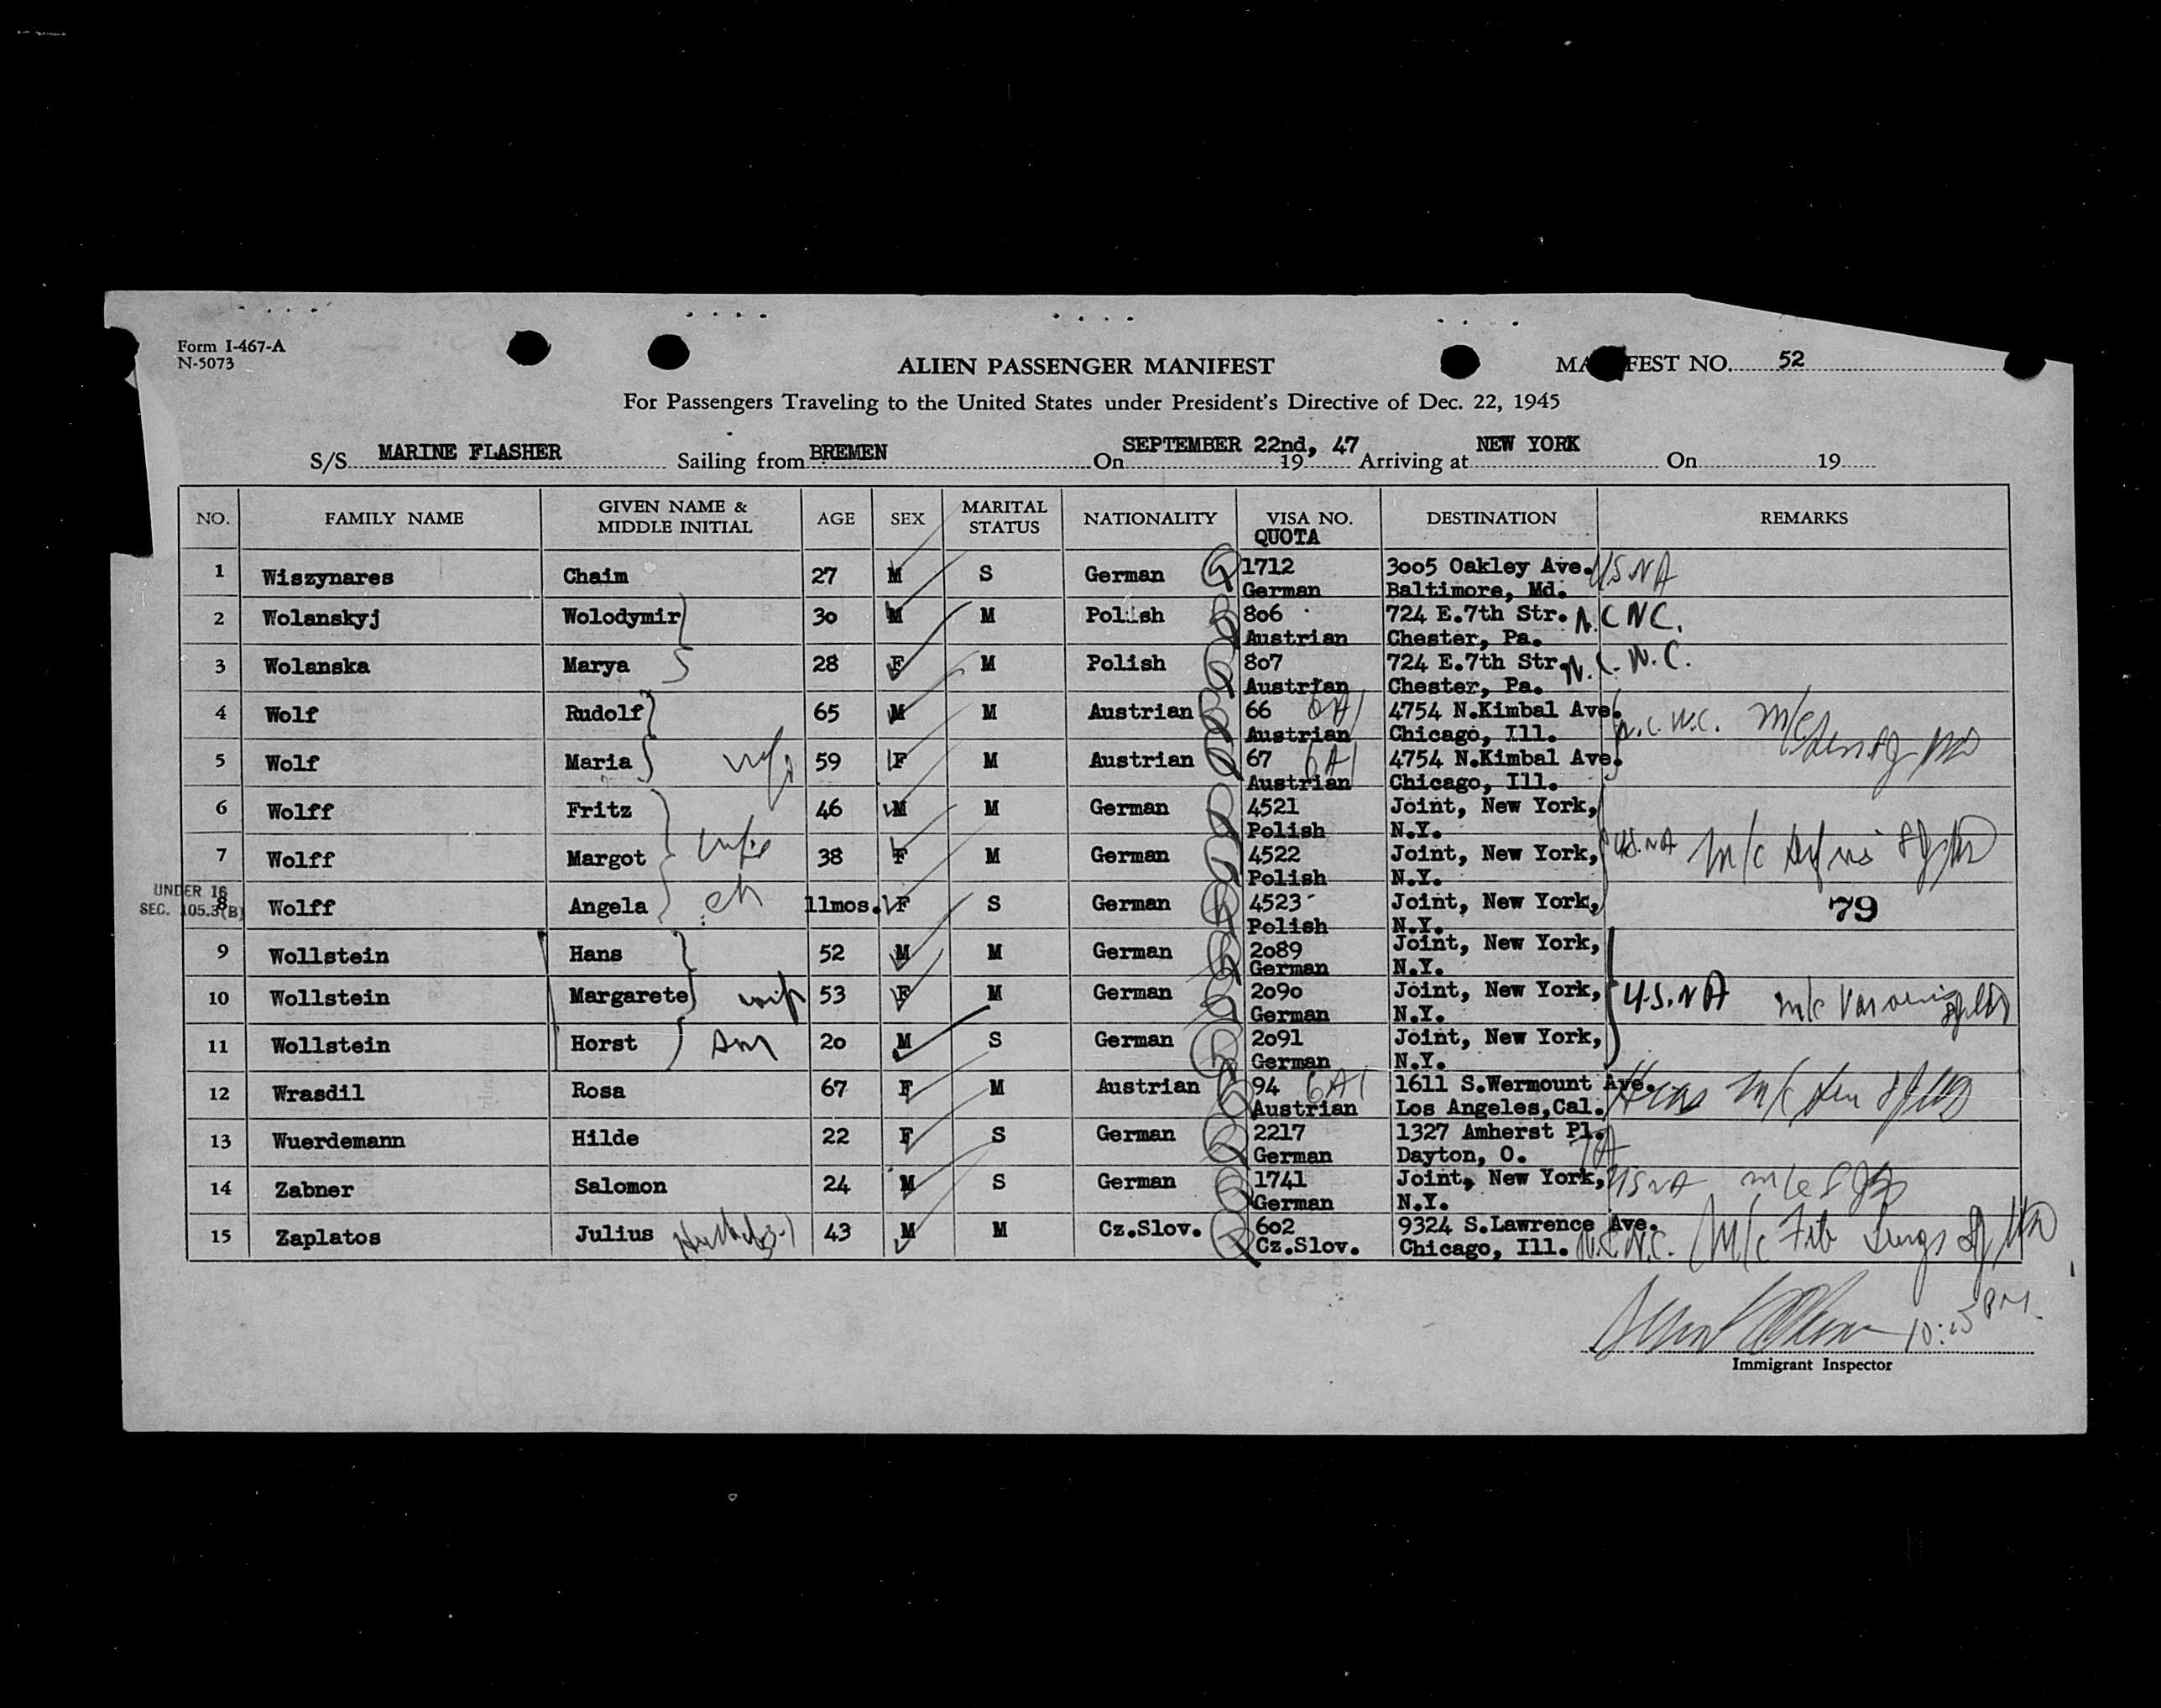 Form I-467-A
N-5073
ALIEN PASSENGER MANIFEST
MA FEST NO. 52
For Passengers Traveling to the United States under President's Directive of Dec. 22, 1945
S/S MARINE FLASHER Sailing from BREMEN On SEPTEMBER 22nd, 19 47 Arriving at NEW YORK On 19
NO. FAMILY NAME GIVEN NAME & MIDDLE INITIAL AGE SEX MARITAL STATUS NATIONALITY VISA NO. QUOTA DESTINATION REMARKS
1 Wiszynares Chaim 27 M S German 1712 3005 Oakley Ave. USNA
German Baltimore, Md.
2 Wolanskyj Wolodymir 30 M M Polish 806 724 E.7th Str. N.C.W.C.
Austrian Chester, Pa.
3 Wolanska Marya 28 F M Polish 807 724 E.7th Str. N.C.W.C.
Austrian Chester, Pa.
4 Wolf Rudolf 65 M M Austrian 66 6A1 4754 N.Kimbal Ave. N.C.W.C. M/C
Austrian Chicago, Ill.
5 Wolf Maria wife 59 F M Austrian 67 6A1 4754 N.Kimbal Ave.
Austrian Chicago, Ill.
6 Wolff Fritz 46 M M German 4521 Joint, New York,
Polish N.Y.
7 Wolff Margot wife 38 F M German 4522 Joint, New York, U.S.NA M/C
Polish N.Y.
UNDER 16
SEC. 105.3(B)
8 Wolff Angela ch 11mos. F S German 4523 Joint, New York, 79
Polish N.Y.
9 Wollstein Hans 52 M M German 2089 Joint, New York,
German N.Y.
10 Wollstein Margarete wife 53 F M German 2090 Joint, New York, U.S.NA M/C
German N.Y.
11 Wollstein Horst son 20 M S German 2091 Joint, New York,
German N.Y.
12 Wrasdil Rosa 67 F M Austrian 94 6A1 1611 S.Wermount Ave. Hias M/C
Austrian Los Angeles,Cal.
13 Wuerdemann Hilde 22 F S German 2217 1327 Amherst Pl.
German Dayton, O.
14 Zabner Salomon 24 M S German 1741 Joint, New York, USNA M/C
German N.Y.
15 Zaplatos Julius 43 M M Cz.Slov. 602 9324 S.Lawrence Ave. M/C Fib Lungs
Cz.Slov. Chicago, Ill. N.C.W.C.
Immigrant Inspector